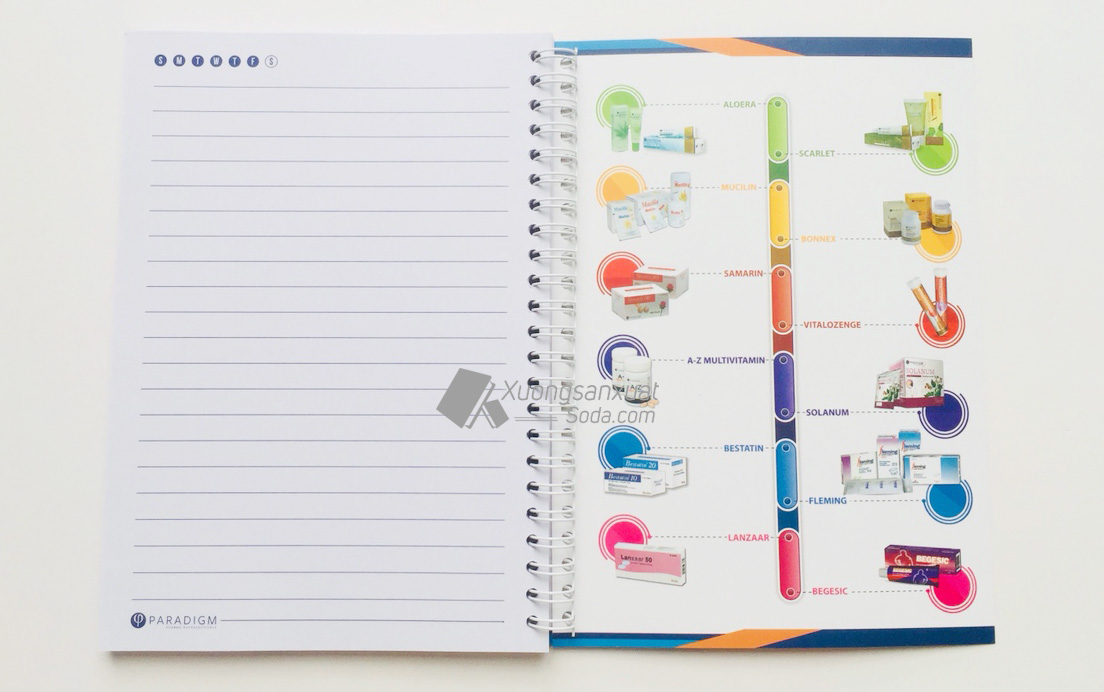 S M T W T F S
PARADIGM
ALOERA
SCARLET
MUCILIN
BONNEX
SAMARIN
VITALOZENGE
A-Z MULTIVITAMIN
SOLANUM
SOLANUM
BESTATIN
Bestatin 20
Bestatin 10
FLEMING
LANZAAR
Lanzaar 50
BEGESIC
BEGESIC
BEGESIC
Xuongsanxuat
Soda.com